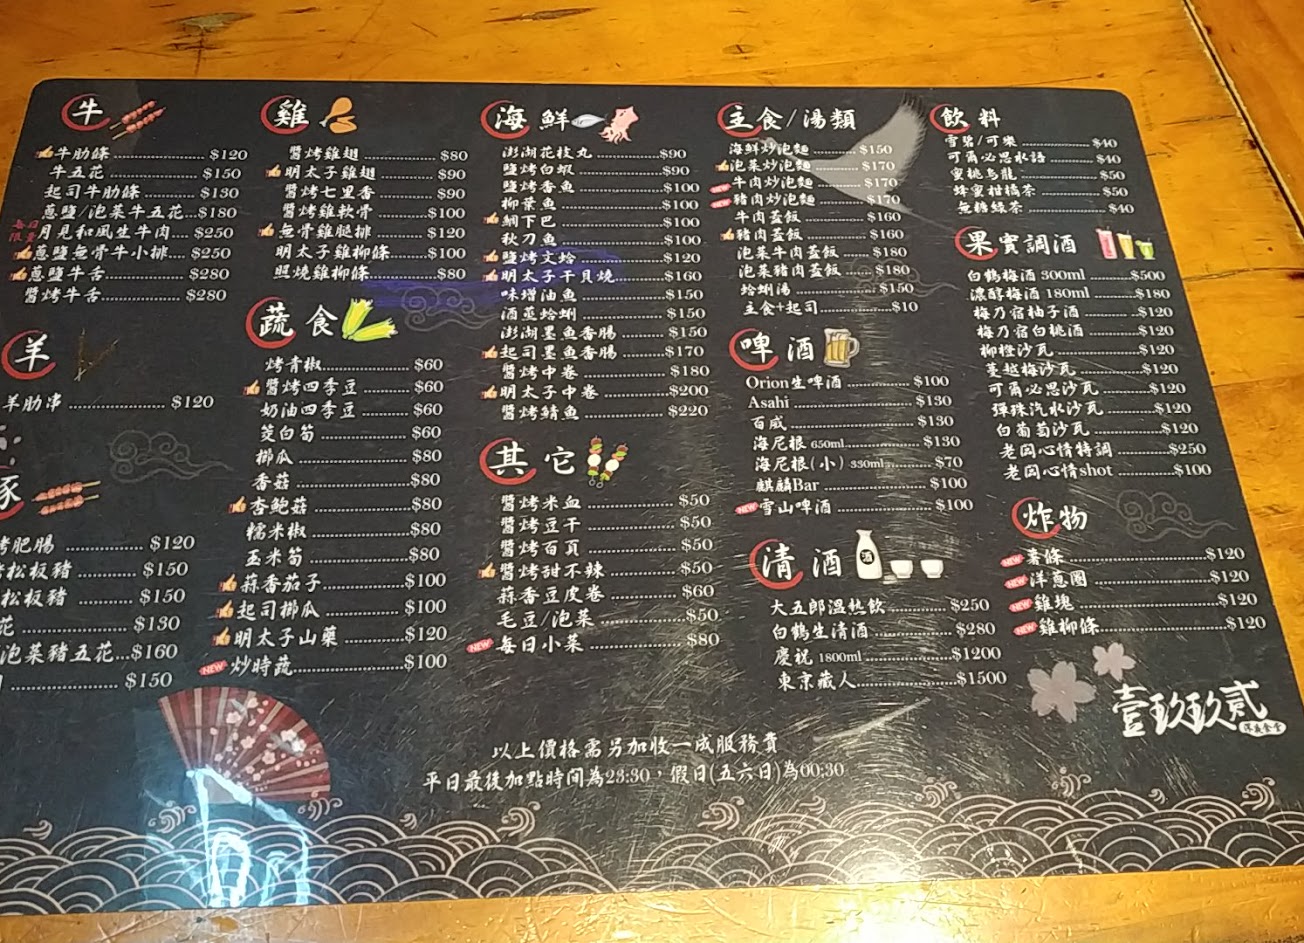 牛
牛肋條 $120
牛五花 $150
起司牛肋條 $130
蔥鹽/泡菜牛五花 $180
每日限量 月見和風生牛肉 $250
蔥鹽無骨牛小排 $250
蔥鹽牛舌 $280
醬烤牛舌 $280
羊
羊肋串 $120
豚
烤肥腸 $120
松板豬 $150
松板豬 $150
花 $130
泡菜豬五花 $160
$150
雞
醬烤雞翅 $80
明太子雞翅 $90
醬烤七里香 $90
醬烤雞軟骨 $100
無骨雞腿排 $120
明太子雞柳條 $100
照燒雞柳條 $80
蔬食
烤青椒 $60
醬烤四季豆 $60
奶油四季豆 $60
筊白筍 $60
櫛瓜 $80
香菇 $80
杏鮑菇 $80
糯米椒 $80
玉米筍 $80
蒜香茄子 $100
起司櫛瓜 $100
明太子山藥 $120
NEW 炒時蔬 $100
海鮮
澎湖花枝丸 $90
鹽烤白蝦 $90
鹽烤香魚 $100
柳葉魚 $100
鯛下巴 $100
秋刀魚 $100
鹽烤文蛤 $120
明太子干貝燒 $160
味增油魚 $150
酒蒸蛤蜊 $150
澎湖墨魚香腸 $150
起司墨魚香腸 $170
醬烤中卷 $180
明太子中卷 $200
醬烤鯖魚 $220
其它
醬烤米血 $50
醬烤豆干 $50
醬烤百頁 $50
醬烤甜不辣 $50
蒜香豆皮卷 $60
毛豆/泡菜 $50
NEW 每日小菜 $80
主食/湯類
海鮮炒泡麵 $150
泡菜炒泡麵 $170
NEW 牛肉炒泡麵 $170
NEW 豬肉炒泡麵 $170
牛肉蓋飯 $160
豬肉蓋飯 $160
泡菜牛肉蓋飯 $180
泡菜豬肉蓋飯 $180
蛤蜊湯 $150
主食+起司 $10
啤酒
Orion生啤酒 $100
Asahi $130
百威 $130
海尼根 650ml $130
海尼根(小) 330ml $70
麒麟Bar $100
NEW 雪山啤酒 $100
清酒
酒
大五郎溫熱飲 $250
白鶴生清酒 $280
慶祝 1800ml $1200
東京藏人 $1500
飲料
雪碧/可樂 $40
可爾必思水語 $40
蜜桃烏龍 $50
蜂蜜柑橘茶 $50
無糖綠茶 $40
果實調酒
白鶴梅酒 300ml $500
濃醇梅酒 180ml $180
梅乃宿柚子酒 $120
梅乃宿白桃酒 $120
柳橙沙瓦 $120
蔓越梅沙瓦 $120
可爾必思沙瓦 $120
彈珠汽水沙瓦 $120
白葡萄沙瓦 $120
老闆心情特調 $250
老闆心情shot $100
炸物
NEW 薯條 $120
NEW 洋蔥圈 $120
NEW 雞塊 $120
NEW 雞柳條 $120
壹玖玖貳
以上價格需另加收一成服務費
平日最後加點時間為23:30，假日(五六日)為00:30